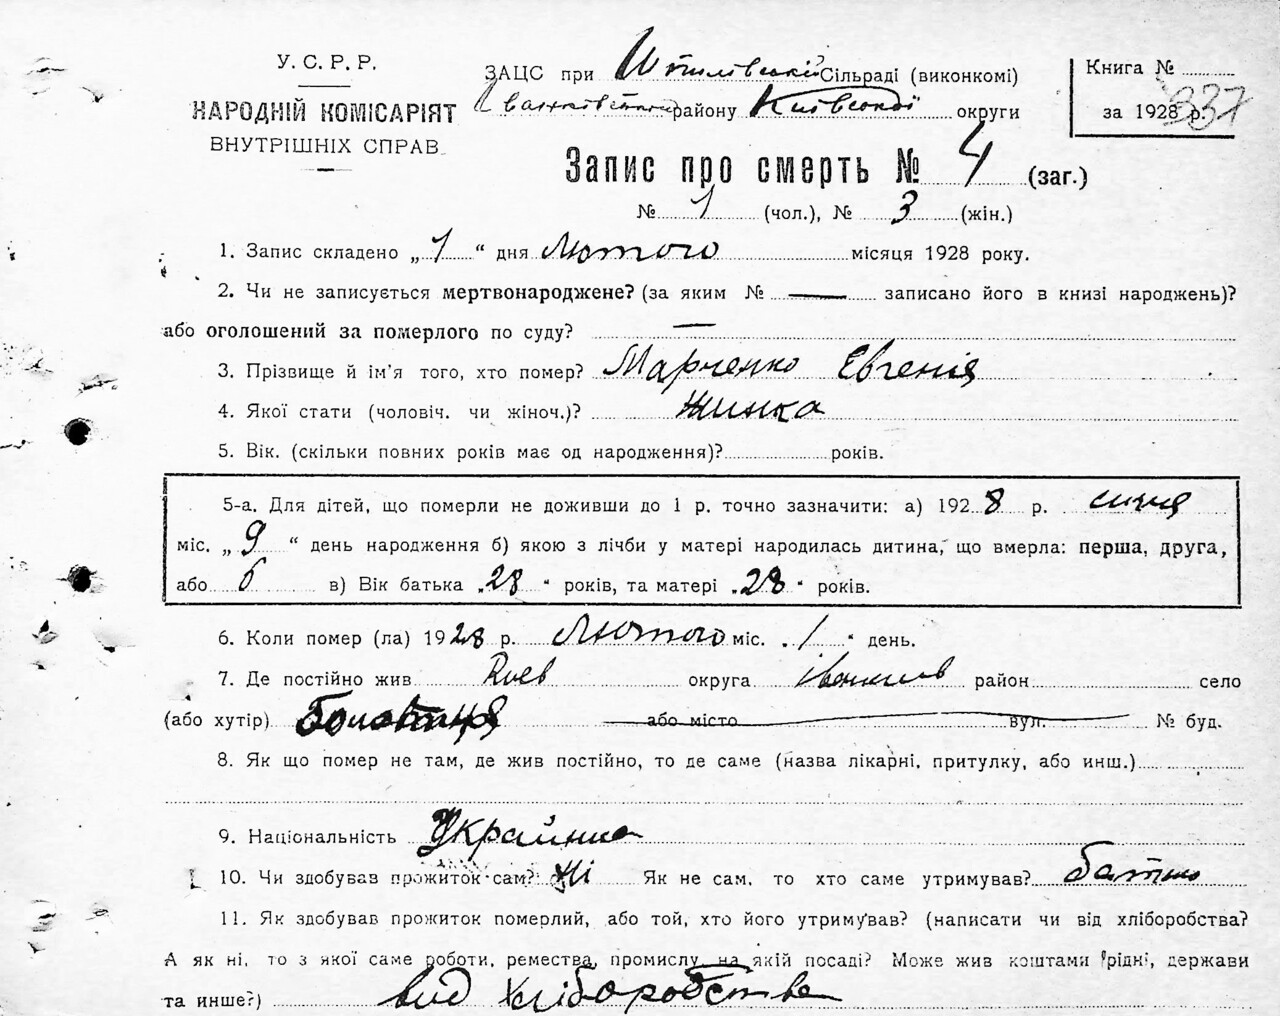 У. С. Р. Р.
НАРОДНІЙ КОМІСАРІЯТ
ВНУТРІШНІХ СПРАВ
ЗАЦС при Сільраді (виконкомі)
району Київської округи
Книга №
за 1928 р.
337
Запис про смерть № 4 (заг.)
№ 1 (чол.), № 3 (жін.)
1. Запис складено „1“ дня Лютого місяця 1928 року.
2. Чи не записується мертвонароджене? (за яким № — записано його в книзі народжень)?
або оголошений за померлого по суду? —
3. Прізвище й ім'я того, хто помер? Марченко Евгенія
4. Якої стати (чоловіч. чи жіноч.)? Жинка
5. Вік. (скільки повних років має од народження)? років.
5-а. Для дітей, що померли не доживши до 1 р. точно зазначити: а) 1928 р. січня
міс. „9“ день народження б) якою з лічби у матері народилась дитина, що вмерла: перша, друга,
або 6 в) Вік батька „28“ років, та матері „28“ років.
6. Коли помер (ла) 1928 р. Лютого міс. „1“ день.
7. Де постійно жив Киев округа район село
(або хутір) або місто вул. № буд.
8. Як що помер не там, де жив постійно, то де саме (назва лікарні, притулку, або инш.)
9. Національність Українка
10. Чи здобував прожиток сам? Ні Як не сам, то хто саме утримував? батько
11. Як здобував прожиток померлий, або той, хто його утримував? (написати чи від хліборобства?
А як ні, то з якої саме роботи, ремества, промислу, на якій посаді? Може жив коштами рідні, держави
та инше?) вид хліборобства